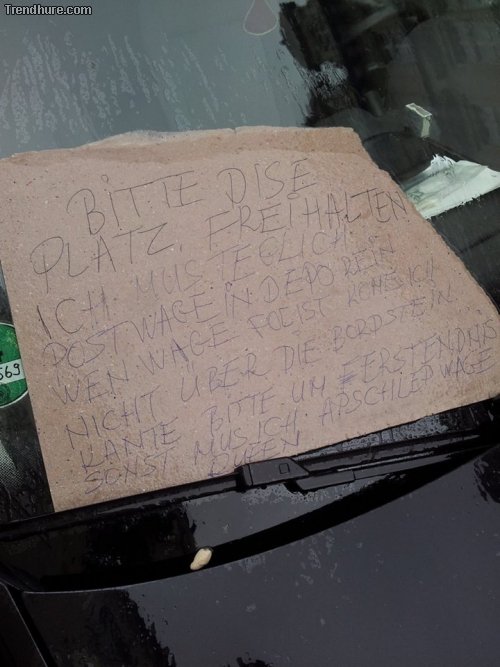 Trendhure.com
BITTE DISE
PLATZ FREIHALTEN
ICH MUS TEGLICH
POSTWAGE IN DEPO REIN
WEN WAGE FOL IST KOMES ICH
NICHT ÜBER DIE BORDSTEIN
KANTE BITTE UM FERSTENDNIS
SONST MUS ICH APSCHLEPWAGE
RUFEN
569